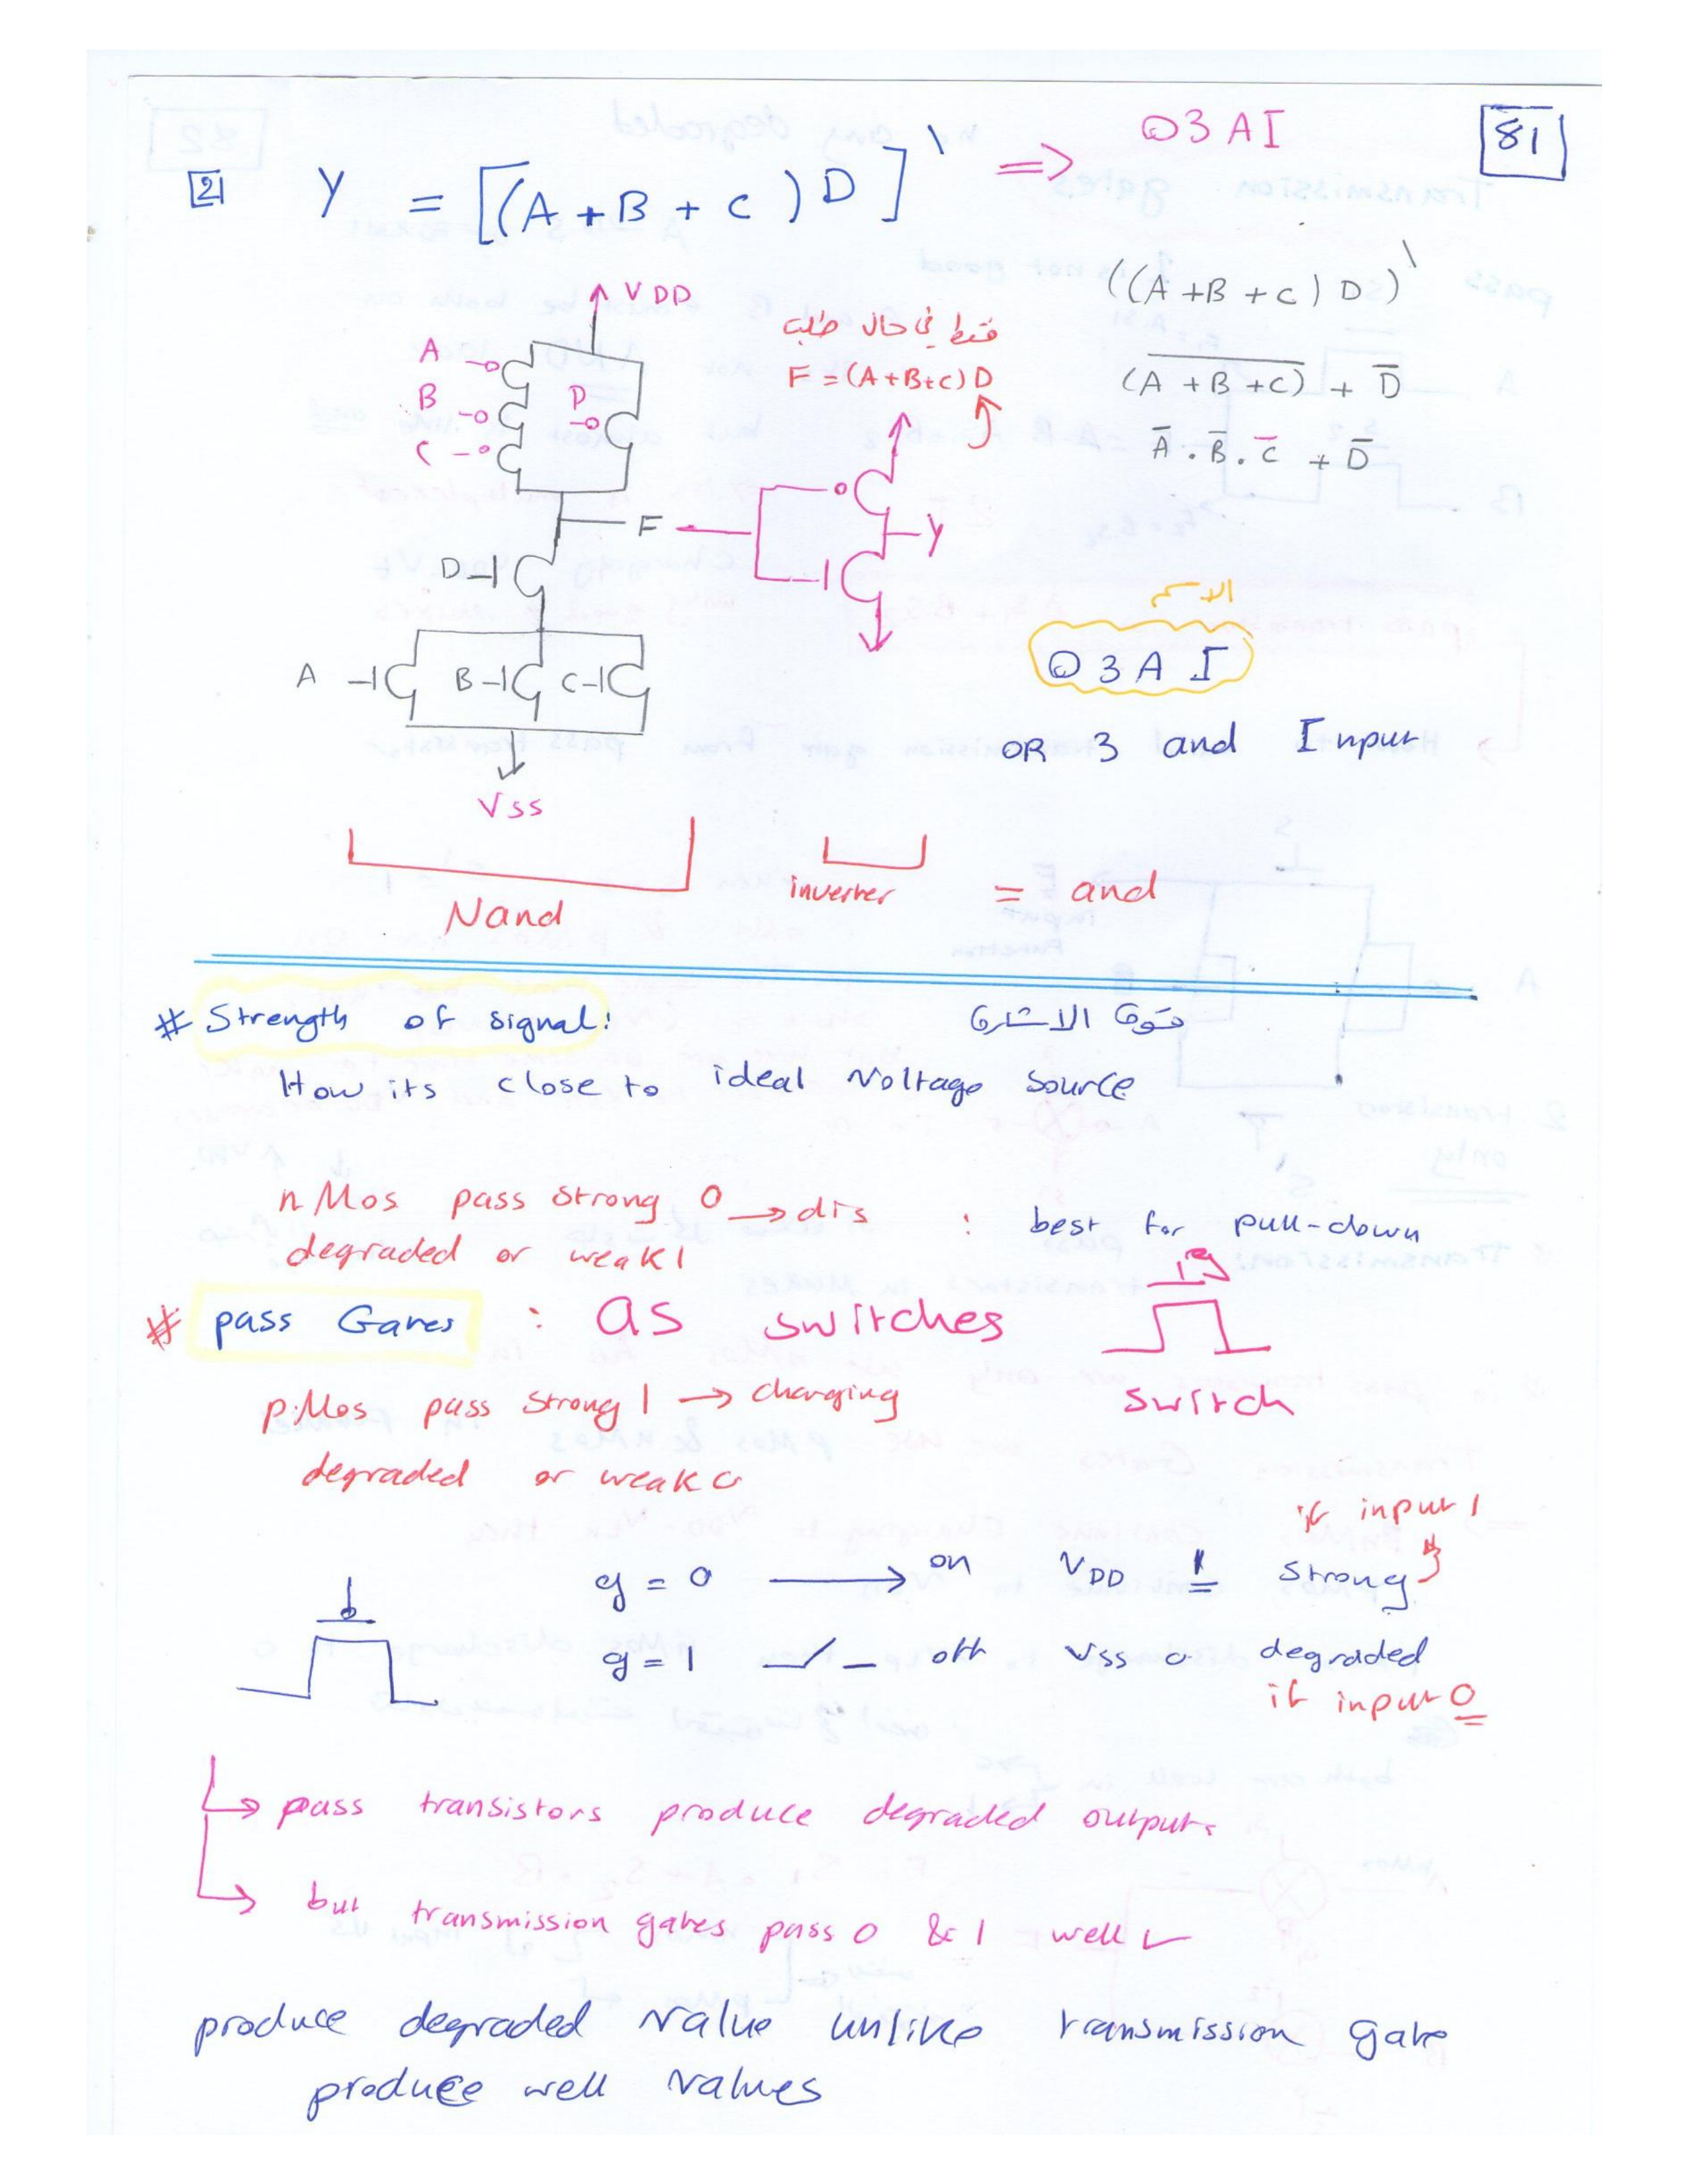 81
O3AI
[2] Y = [(A + B + C) D]' ⇒
VDD
((A + B + C) D)'
فقط في حال طلب
F = (A+B+C) D
A
B
C
D
(A + B + C)‾ + D̅
A̅ . B̅ . C̅ + D̅
F
Y
D
الاسم
A B C
O3AI
OR 3 and Input
Vss
Nand
inverter = and
# Strength of signal: قوة الاشارة
How its close to ideal Voltage source
nMos pass strong 0 → dis : best for pull-down
degraded or weak 1
# pass Gates : as switches
switch
pMos pass strong 1 → charging
degraded or weak 0
if input 1
g = 0 → on VDD 1 strong
g = 1 off Vss 0 degraded
if input 0
→ pass transistors produce degraded output.
→ but transmission gates pass 0 & 1 well ✓
produce degraded value unlike transmission gate
produce well values